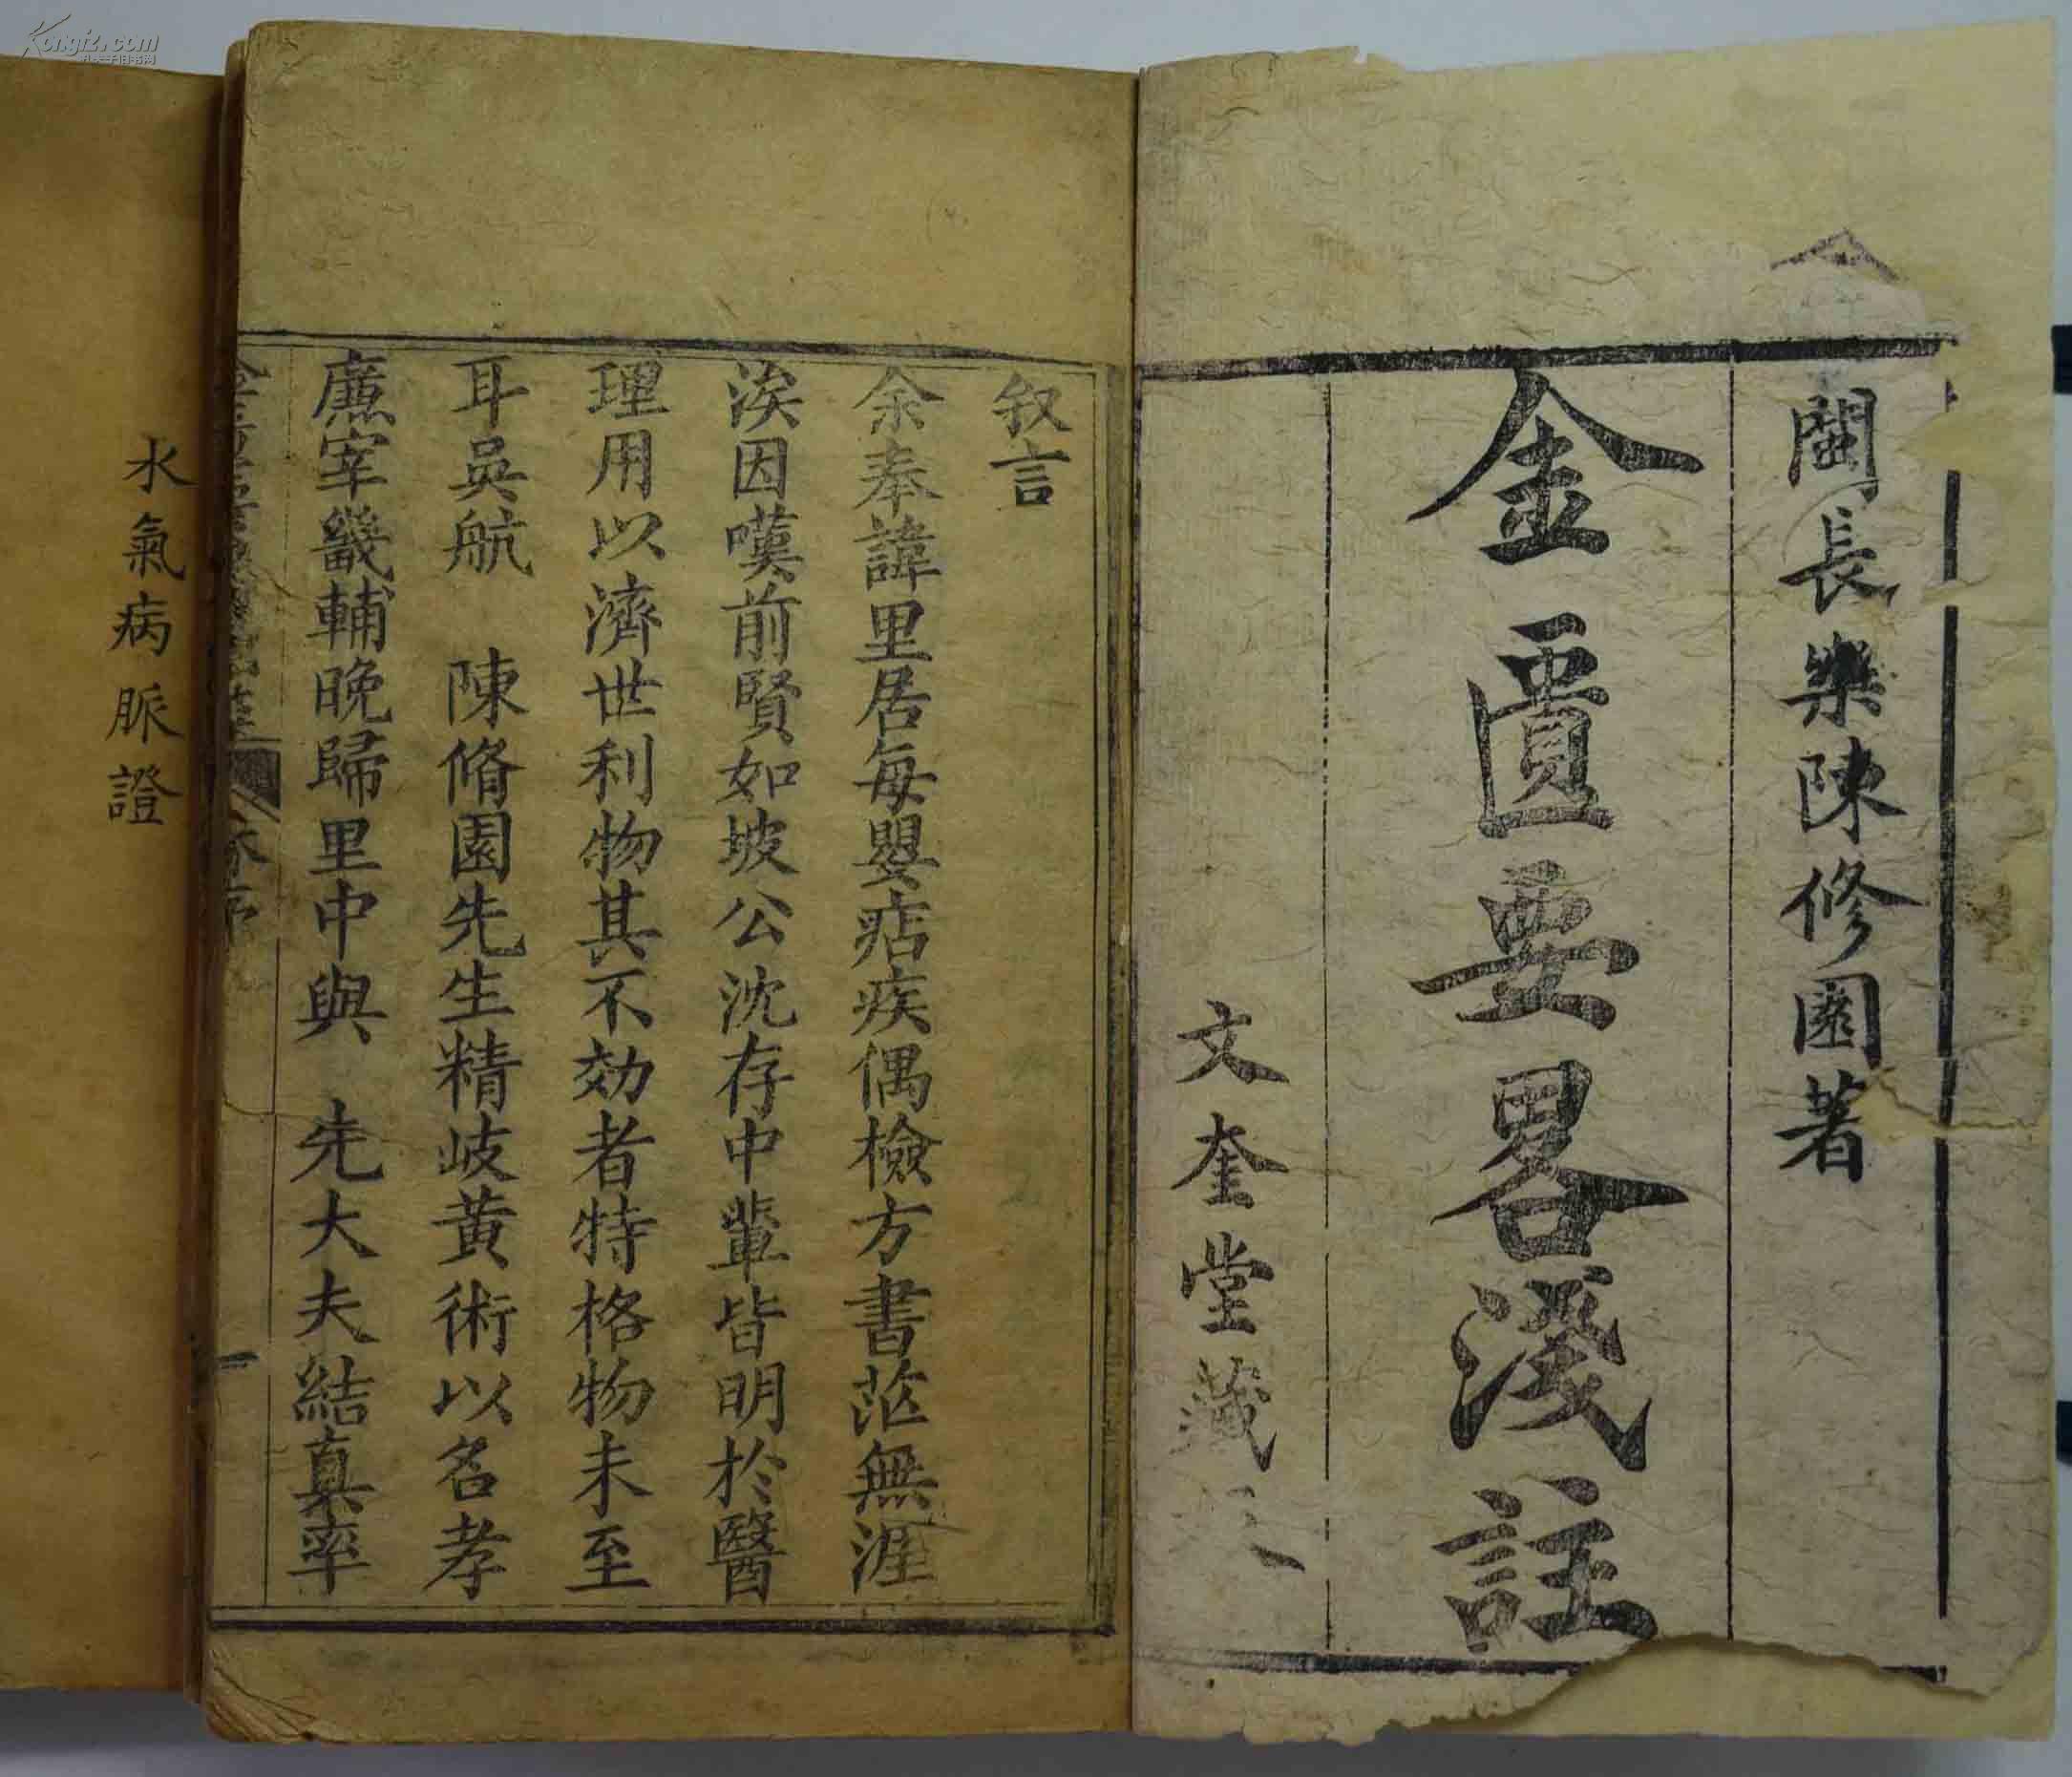 閩長樂陳修園著
金匱要畧淺註
文奎堂藏
叙言
余奉諱里居每嬰痁疾偶檢方書茫無涯
涘因嘆前賢如坡公沈存中輩皆明於醫
理用以濟世利物其不効者特格物未至
耳吳航 陳脩園先生精岐黃術以名孝
廉宰畿輔晚歸里中與 先大夫結真率
一
水氣病脈證
Kongfz.com
孔夫子旧书网